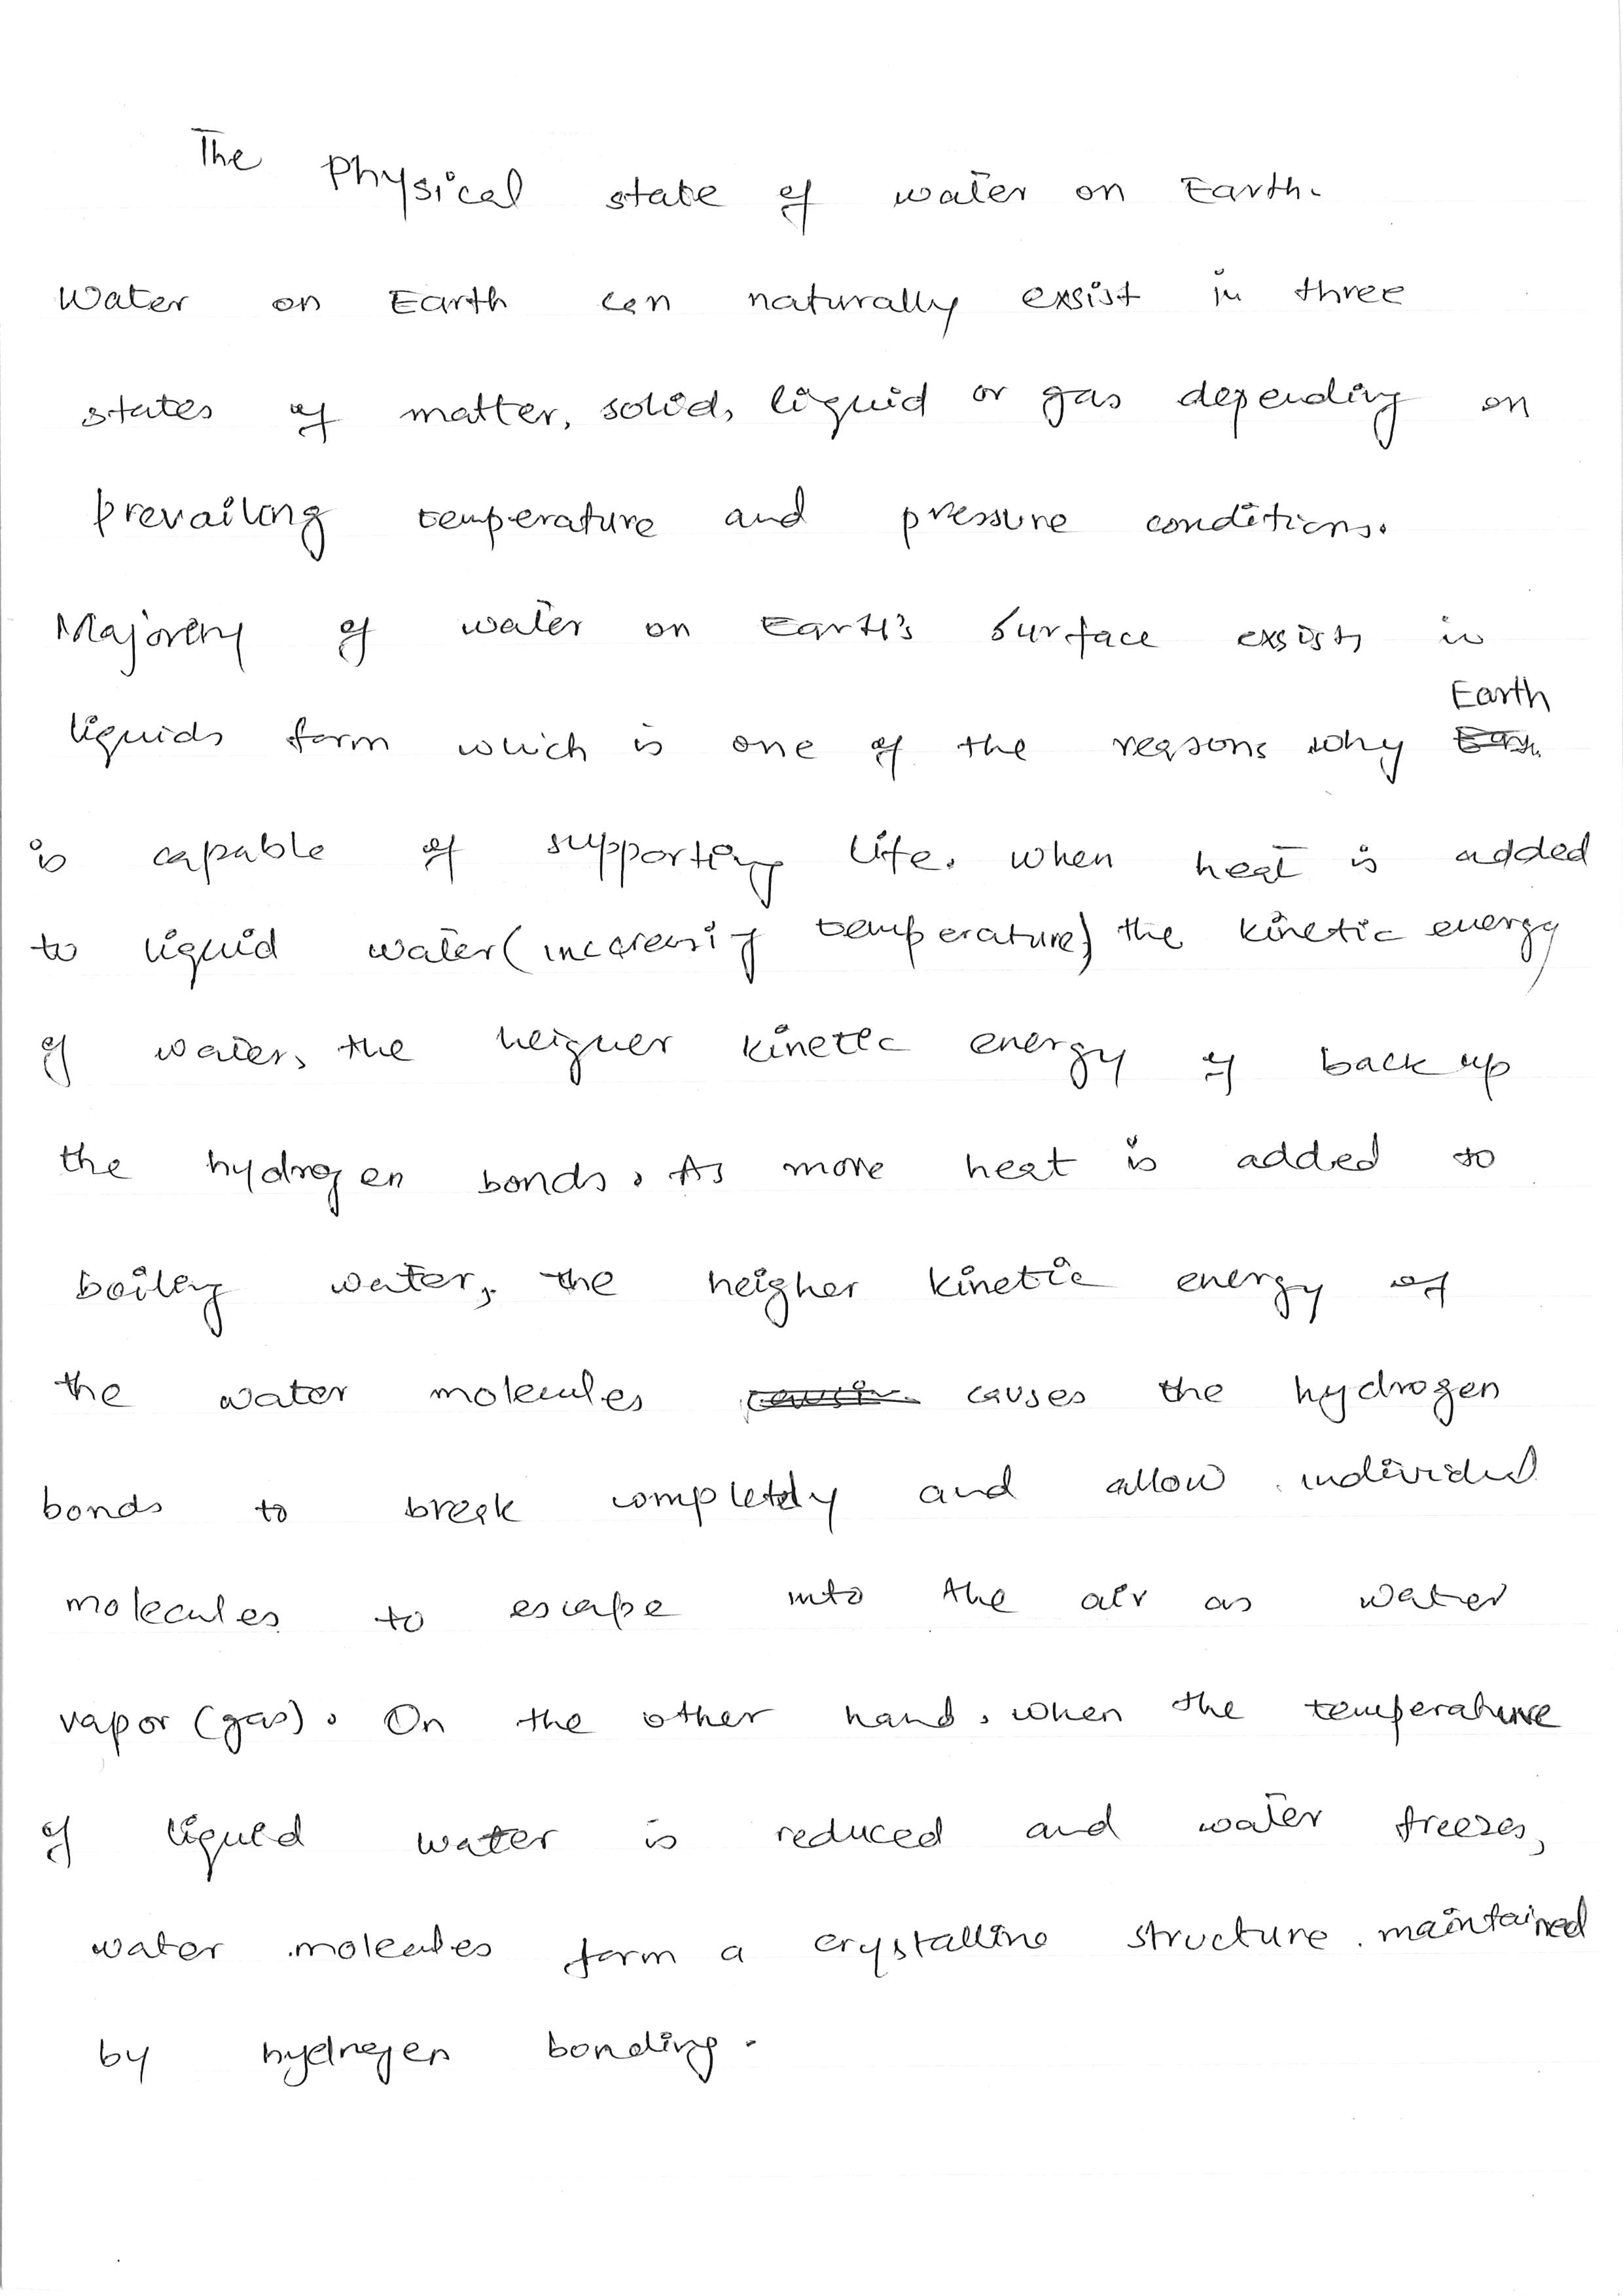 The Physical state of water on Earth.
Water on Earth can naturally exsist in three
states of matter, solid, liquid or gas depending on
prevailing temperature and pressure conditions.
Majority of water on Earth's Surface exsists in
liquids form which is one of the reasons why Earth
is capable of supporting life. when heat is added
to liquid water (increasing temperature) the kinetic energy
of water, the heigher kinetic energy of back up
the hydrogen bonds. As more heat is added to
boiling water, the heigher kinetic energy of
the water molecules causes the hydrogen
bonds to break completely and allow individual
molecules to escape into the air as water
vapor (gas). On the other hand, when the temperature
of liquid water is reduced and water freezes,
water molecules form a crystalline structure maintained
by hydrogen bonding.